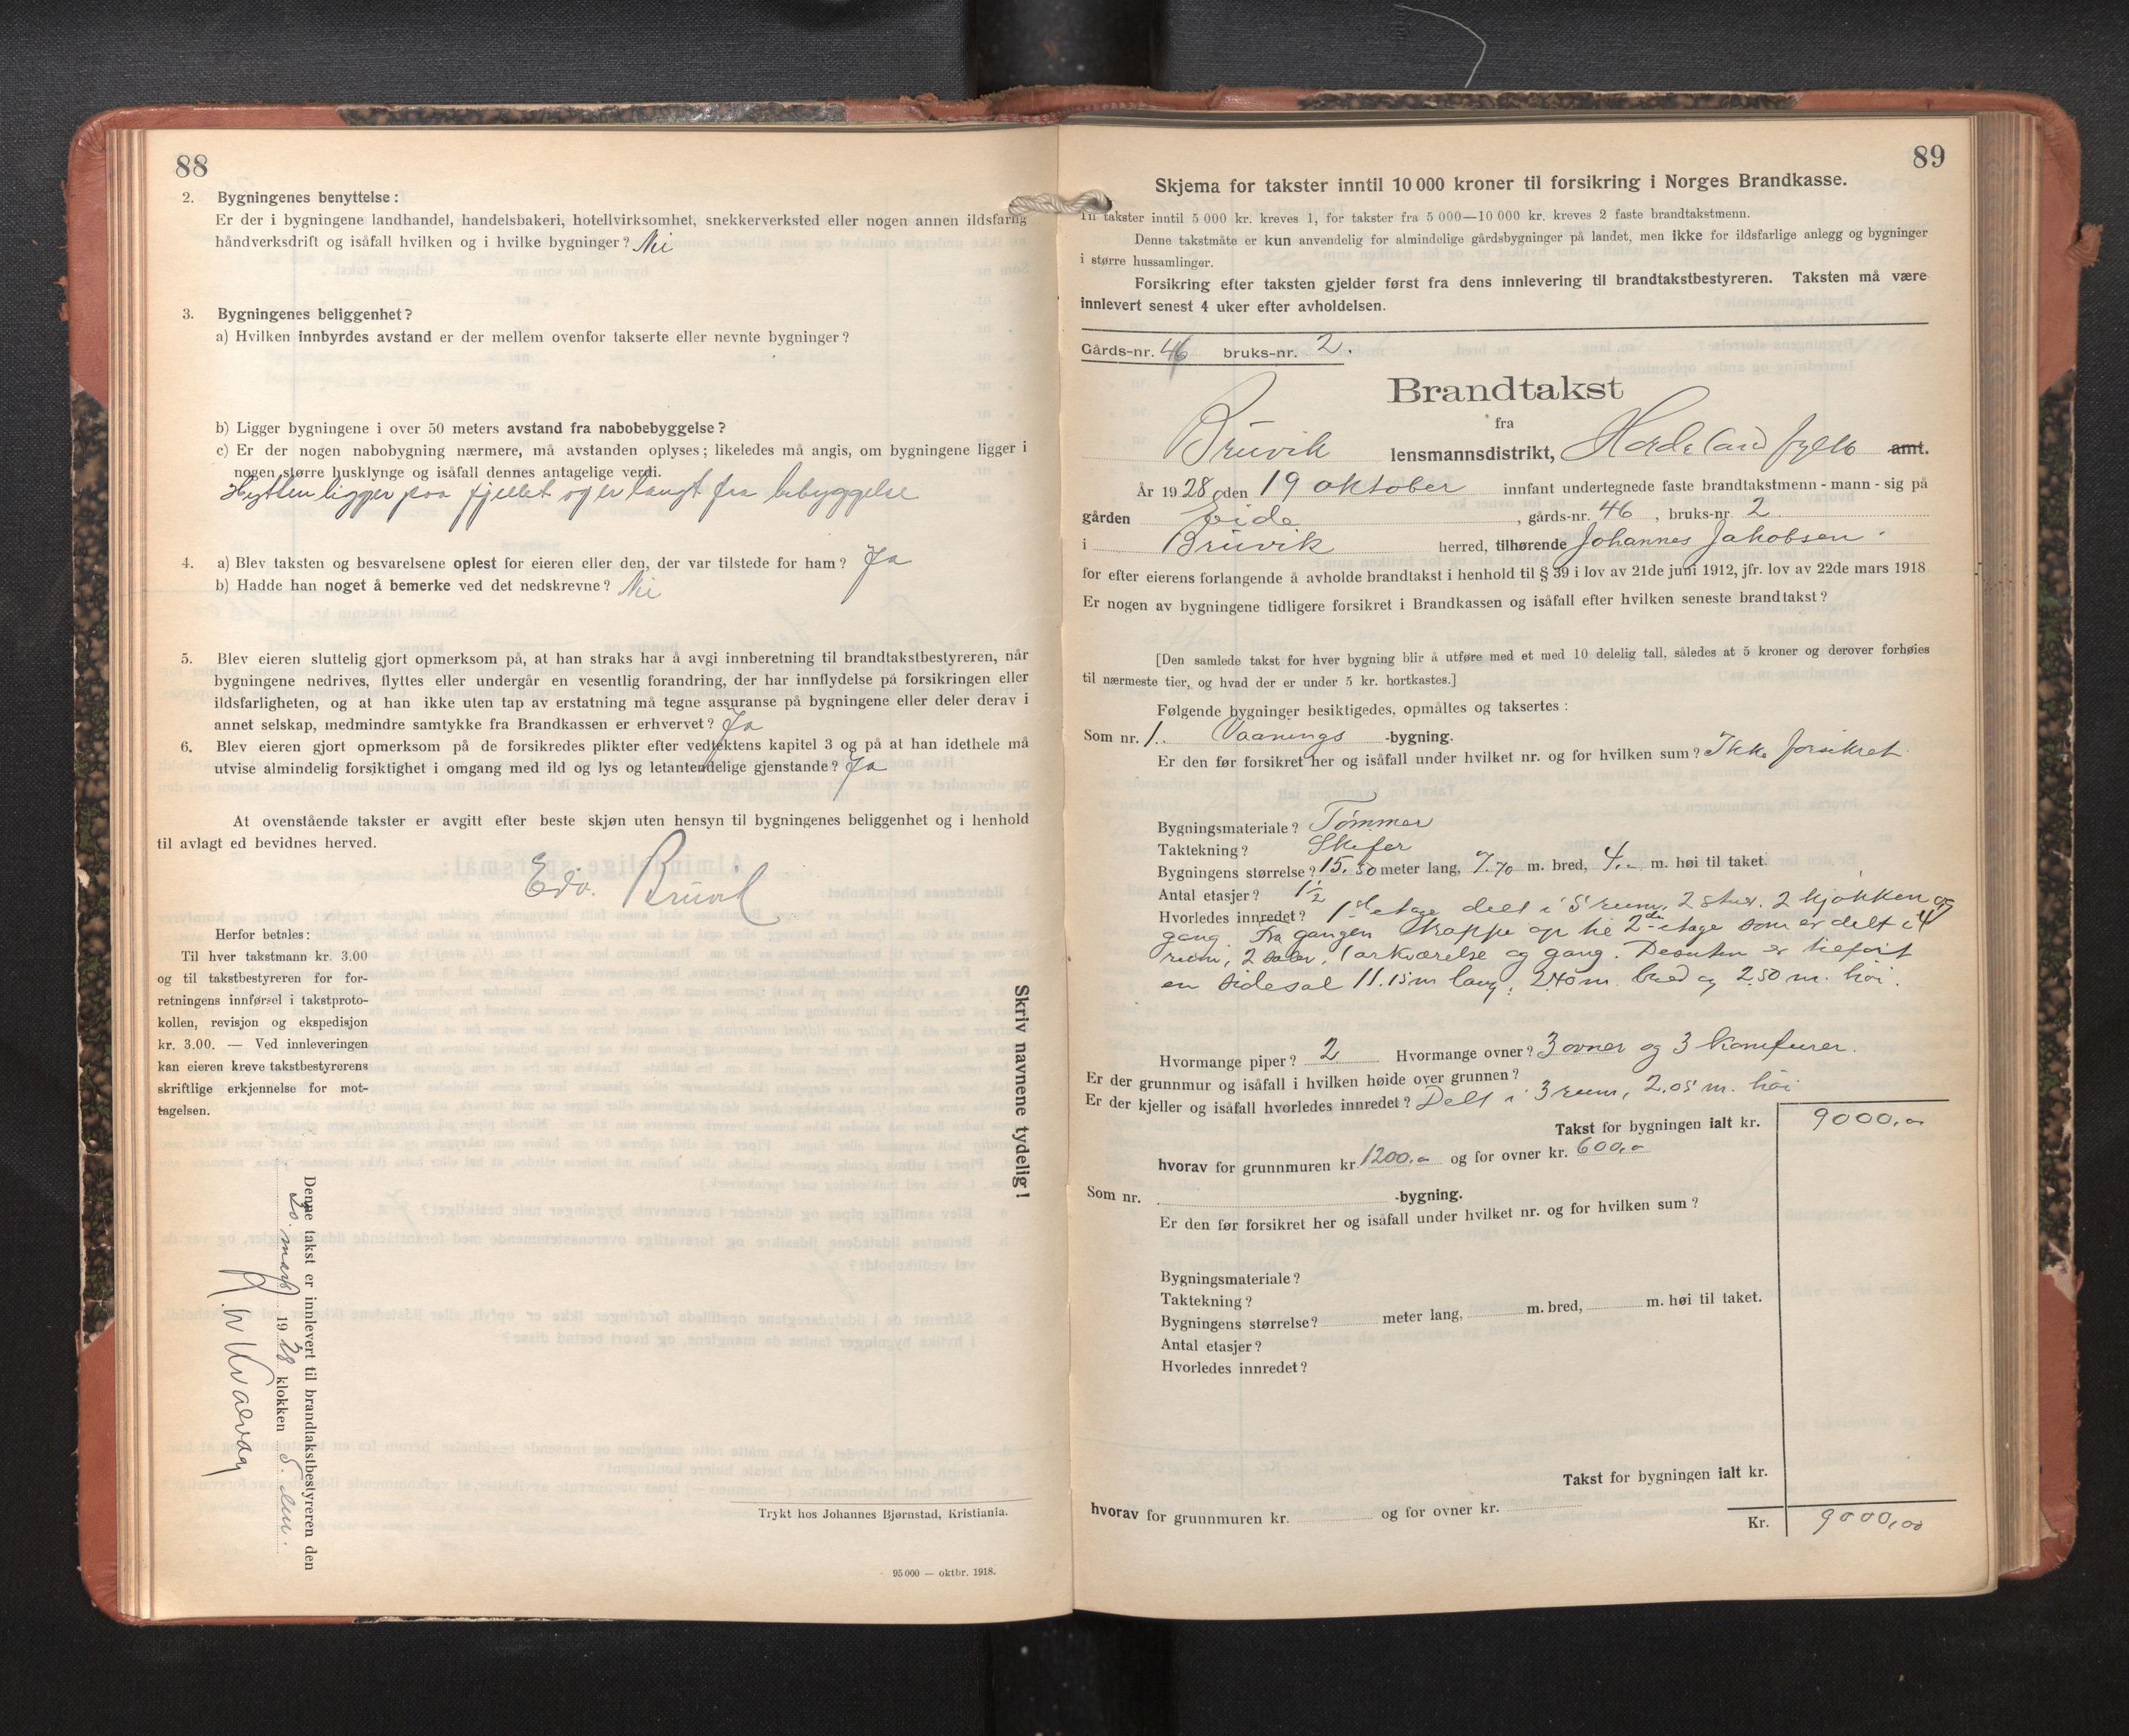 88
2. Bygningenes benyttelse :
Er der i bygningene landhandel, handelsbakeri, hotellvirksomhet, snekkerverksted eller nogen annen ildsfarlig
håndverksdrift og isåfall hvilken og i hvilke bygninger? Nei
3. Bygningenes beliggenhet?
a) Hvilken innbyrdes avstand er der mellem ovenfor takserte eller nevnte bygninger?
b) Ligger bygningene i over 50 meters avstand fra nabobebyggelse?
c) Er der nogen nabobygning nærmere, må avstanden oplyses; likeledes må angis, om bygningene ligger i
nogen større husklynge og isåfall dennes antagelige verdi.
Hytten ligger paa fjellet og er langt fra bebyggelse
4. a) Blev taksten og besvarelsene oplest for eieren eller den, der var tilstede for ham? Ja
b) Hadde han noget å bemerke ved det nedskrevne? Nei
5. Blev eieren sluttelig gjort opmerksom på, at han straks har å avgi innberetning til brandtakstbestyreren, når
bygningene nedrives, flyttes eller undergår en vesentlig forandring, der har innflydelse på forsikringen eller
ildsfarligheten, og at han ikke uten tap av erstatning må tegne assuranse på bygningene eller deler derav i
annet selskap, medmindre samtykke fra Brandkassen er erhvervet? Ja
6. Blev eieren gjort opmerksom på de forsikredes plikter efter vedtektens kapitel 3 og på at han idethele må
utvise almindelig forsiktighet i omgang med ild og lys og letantendelige gjenstande? Ja
At ovenstående takster er avgitt efter beste skjøn uten hensyn til bygningenes beliggenhet og i henhold
til avlagt ed bevidnes herved.
Edv. Bruvik
Herfor betales:
Til hver takstmann kr. 3.00
og til takstbestyreren for for-
retningens innførsel i takstproto-
kollen, revisjon og ekspedisjon
kr. 3.00. — Ved innleveringen
kan eieren kreve takstbestyrerens
skriftlige erkjennelse for mot-
tagelsen.
Skriv navnene tydelig!
Denne takst er innlevert til brandtakstbestyreren den
20. mars 1928 klokken 5.
Kvaevaag
Trykt hos Johannes Bjørnstad, Kristiania.
95 000 — oktbr. 1918.
89
Skjema for takster inntil 10 000 kroner til forsikring i Norges Brandkasse.
Til takster inntil 5 000 kr. kreves 1, for takster fra 5 000—10 000 kr. kreves 2 faste brandtakstmenn.
Denne takstmåte er kun anvendelig for almindelige gårdsbygninger på landet, men ikke for ildsfarlige anlegg og bygninger
i større hussamlinger.
Forsikring efter taksten gjelder først fra dens innlevering til brandtakstbestyreren. Taksten må være
innlevert senest 4 uker efter avholdelsen.
Gårds-nr. 46 bruks-nr. 2.
Brandtakst
fra
Bruvik lensmannsdistrikt, Hordeland fylke amt.
År 1928, den 19 oktober innfant undertegnede faste brandtakstmenn - mann - sig på
gården Eide, gårds-nr. 46, bruks-nr. 2
i Bruvik herred, tilhørende Johannes Jakobsen
for efter eierens forlangende å avholde brandtakst i henhold til § 39 i lov av 21de juni 1912, jfr. lov av 22de mars 1918
Er nogen av bygningene tidligere forsikret i Brandkassen og isåfall efter hvilken seneste brandtakst?
[Den samlede takst for hver bygning blir å utføre med et med 10 delelig tall, således at 5 kroner og derover forhøies
til nærmeste tier, og hvad der er under 5 kr. bortkastes.]
Følgende bygninger besiktigedes, opmåltes og taksertes :
Som nr. 1. Vaanings -bygning.
Er den før forsikret her og isåfall under hvilket nr. og for hvilken sum? Ikke forsikret
Bygningsmateriale? Tømmer
Taktekning? Skifer
Bygningens størrelse? 15.50 meter lang, 7.70 m. bred, 4.- m. høi til taket.
Antal etasjer? 1½
Hvorledes innredet? 1ste etage delt i 5 rum, 2 stuer, 2 kjøkken og
gang. Fra gangen trappe op til 2den etage som er delt i 4
rum, 2 saler, 1 arkværelse og gang. Desuten er tilføit
en sidesal 11.15 m lang, 2.40 m. bred og 2.50 m. høi.
Hvormange piper? 2 Hvormange ovner? 3 ovner og 3 komfurer.
Er der grunnmur og isåfall i hvilken høide over grunnen?
Er der kjeller og isåfall hvorledes innredet? Delt i 3 rum, 2.05 m. høi
Takst for bygningen ialt kr. 9000,00
hvorav for grunnmuren kr. 1200,00 og for ovner kr. 600,00
Som nr. -bygning.
Er den før forsikret her og isåfall under hvilket nr. og for hvilken sum?
Bygningsmateriale?
Taktekning?
Bygningens størrelse? meter lang, m. bred, m. høi til taket.
Antal etasjer?
Hvorledes innredet?
Takst for bygningen ialt kr.
hvorav for grunnmuren kr. og for ovner kr.
Kr. 9000,00